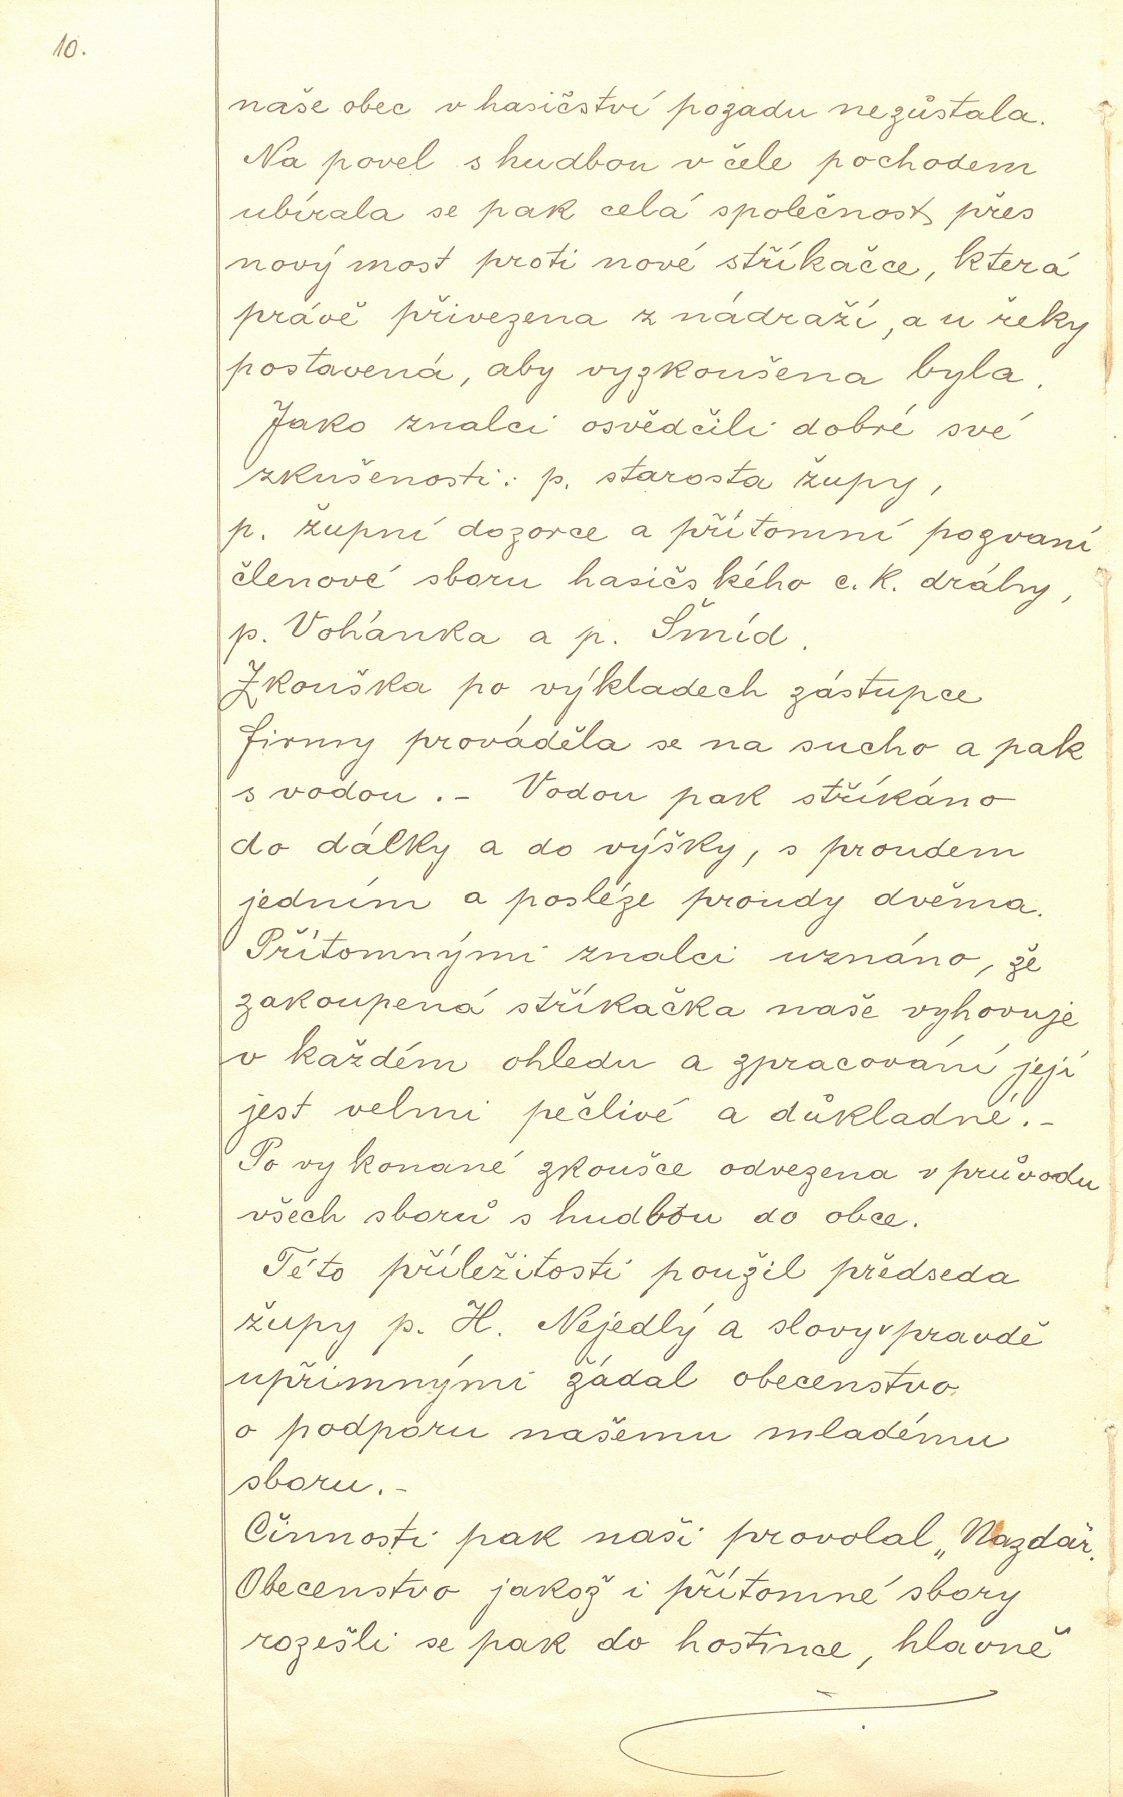 10.
naše obec v hasičství pozadu nezůstala.
Na povel s hudbou v čele pochodem
ubírala se pak celá společnost přes
nový most proti nové stříkačce, která
právě přivezena z nádraží, a u řeky
postavená, aby vyzkoušena byla.
Jako znalci osvědčili dobré své
zkušenosti: p. starosta župy,
p. župní dozorce a přítomní pozvaní
členové sboru hasičského c. k. dráhy,
p. Vohánka a p. Šmíd.
Zkouška po výkladech zástupce
firmy prováděla se na sucho a pak
s vodou. - Vodou pak stříkáno
do dálky a do výšky, s proudem
jedním a posléze proudy dvěma.
Přítomnými znalci uznáno, že
zakoupená stříkačka naše vyhovuje
v každém ohledu a zpracování její
jest velmi pečlivé a důkladné. -
Po vykonané zkoušce odvezena v průvodu
všech sborů s hudbou do obce.
Této příležitosti použil předseda
župy p. H. Nejedlý a slovy v pravdě
upřimnými žádal obecenstvo
o podporu našemu mladému
sboru. -
Činnosti pak naši provolal „Nazdar.
Obecenstvo jakož i přítomné sbory
rozešli se pak do hostince, hlavně